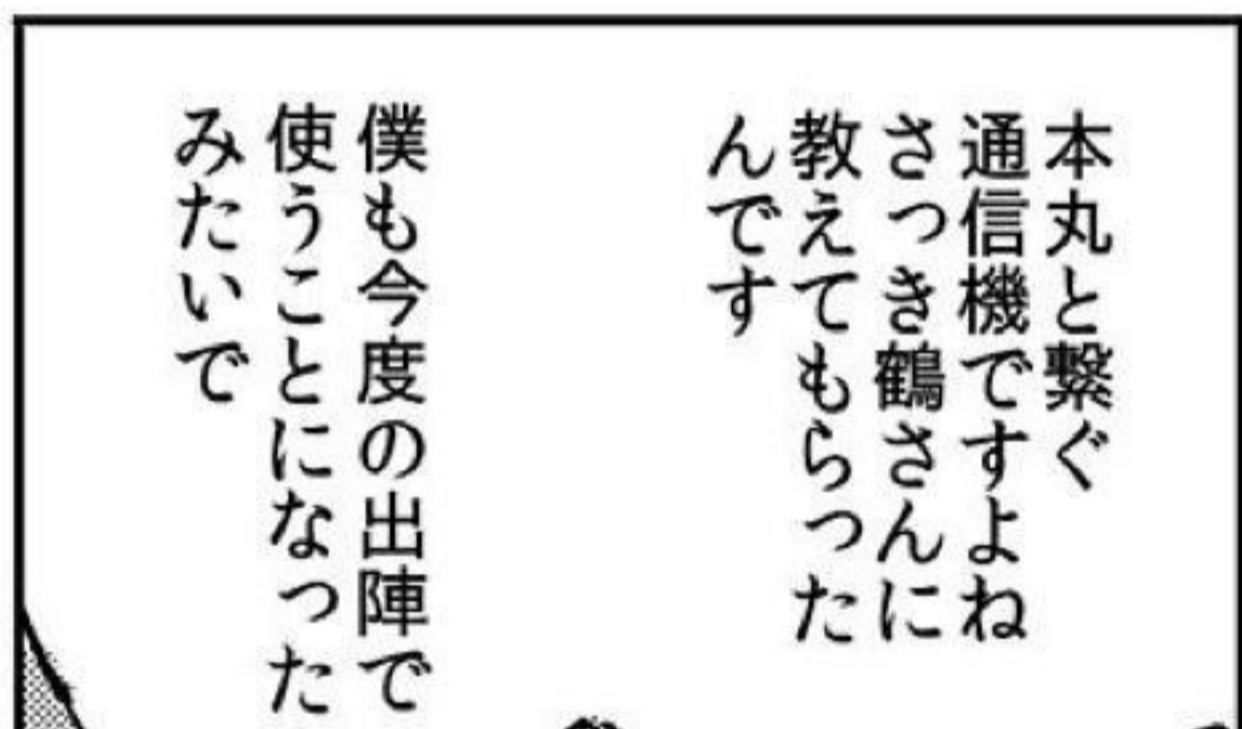 本丸と繋ぐ
通信機ですよね
さっき鶴さんに
教えてもらった
んです
僕も今度の出陣で
使うことになった
みたいで